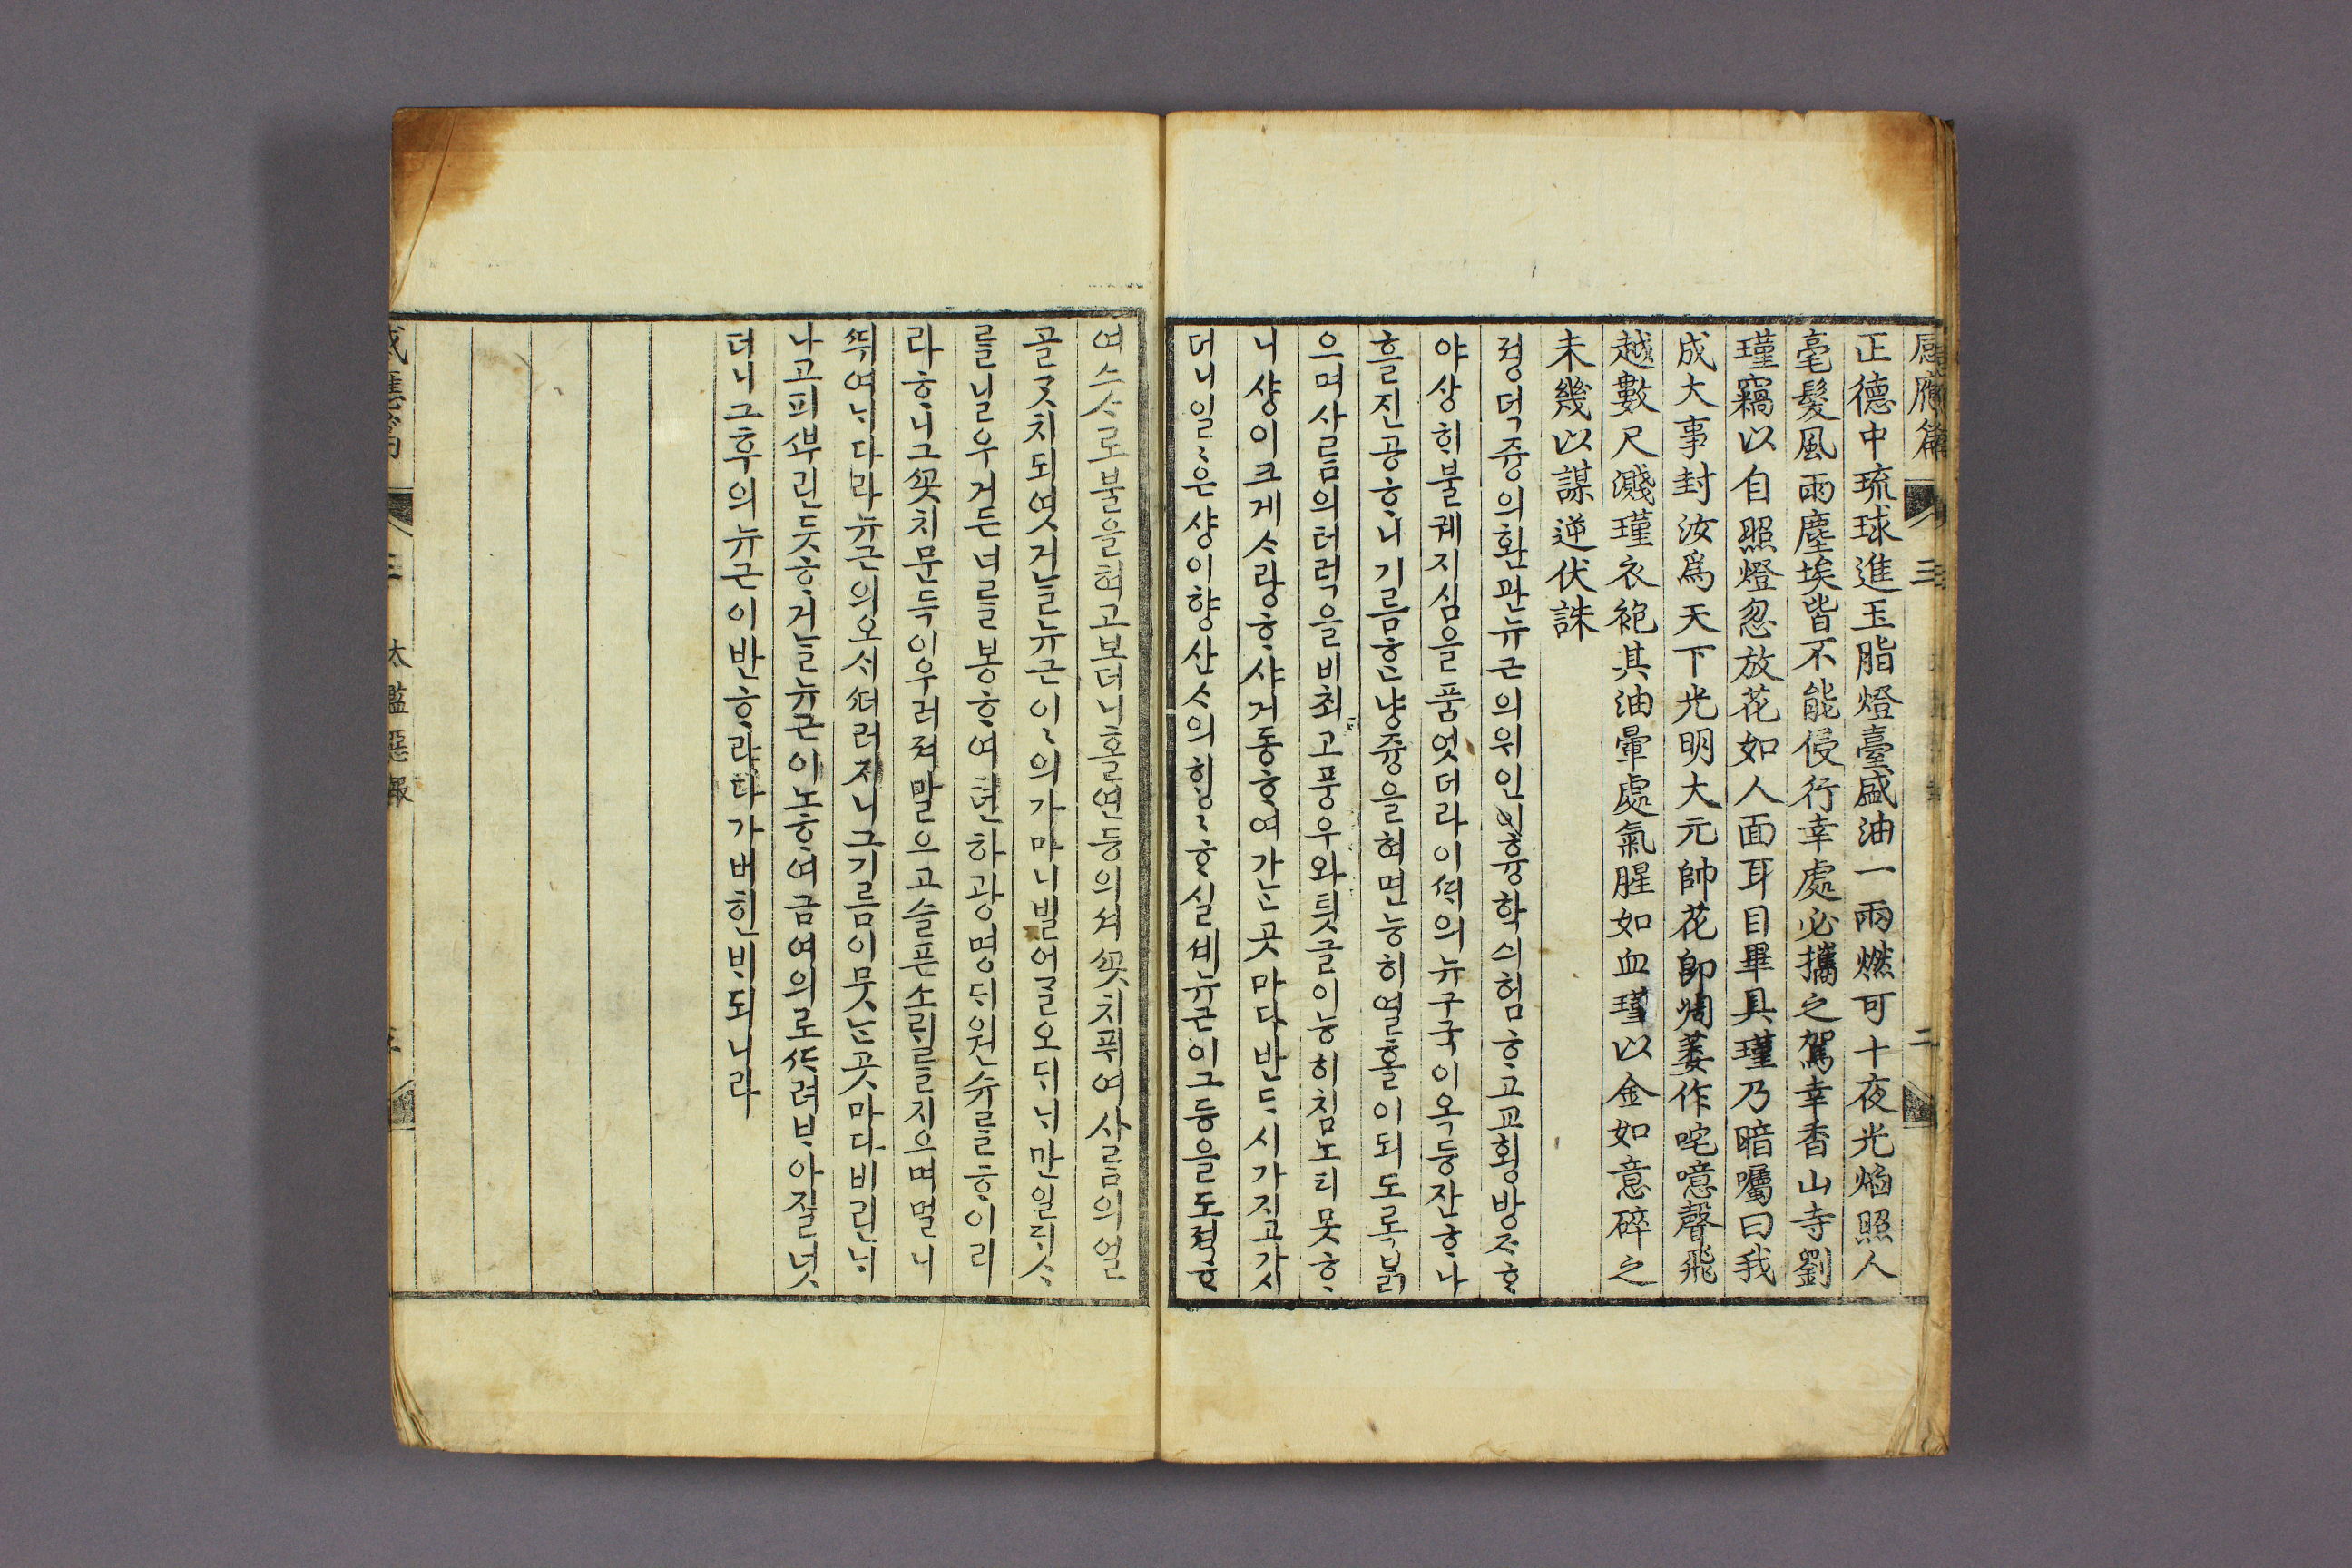 感應篇 三 二
正德中琉球進玉脂燈臺盛油一兩燃可十夜光焰照人
毫髮風雨塵埃皆不能侵行幸處必攜之駕幸香山寺劉
瑾竊以自照燈忽放花如人面耳目畢具瑾乃暗囑曰我
成大事封汝爲天下光明大元帥花卽凋萎作咤噫聲飛
越數尺濺瑾衣袍其油暈處氣腥如血瑾以金如意碎之
未幾以謀逆伏誅
졍덕즁의환관뉴근의위인이흉학싀험ᄒᆞ고교횡방ᄌᆞᄒᆞ
야샹ᄒᆡ불궤지심을품엇더라이ᄯᅢ의뉴구국이옥등잔ᄒᆞ나
흘진공ᄒᆞ니기름ᄒᆞᆫ냥즁을혀면능히열흘이되도록ᄇᆞᆰ
으며사ᄅᆞᆷ의터럭을비최고풍우와틧글이능히침노티못ᄒᆞ
니샹이크게ᄉᆞ랑ᄒᆞ샤거동ᄒᆞ여가ᄂᆞᆫ곳마다반ᄃᆞ시가지고가시
더니일〻은샹이향산ᄉᆞ의ᄒᆡᆼ〻ᄒᆞ실ᄉᆡ뉴근이그등을도젹ᄒᆞ
여스ᄉᆞ로불을혀고보더니홀연등의셔ᄭᅩᆺ치픠여사ᄅᆞᆷ의얼
골ᄀᆞᆺ치되엿거ᄂᆞᆯ뉴근이〻의가마니빌어ᄀᆞᆯ오ᄃᆡᄂᆡ만일ᄃᆡᄉᆞ
를닐우거든너를봉ᄒᆞ여텬하광명ᄃᆡ원슈를ᄒᆞ이리
라ᄒᆞ니그ᄭᅩᆺ치문득이우러져말으고슬픈소ᄅᆡ를지으며멀니
ᄯᅱ여ᄂᆡᄃᆞ라뉴근의오ᄉᆡᄯᅥ러지니그기름이뭇ᄂᆞᆫ곳마다비린ᄂᆡ
나고피ᄲᅮ린듯ᄒᆞ거ᄂᆞᆯ뉴근이노ᄒᆞ여금여의로ᄯᆞ려ᄇᆞ아질넛
더니그후의뉴근이반ᄒᆞ랴타가버힌ᄇᆡ되니라
感應篇 三 太監惡報